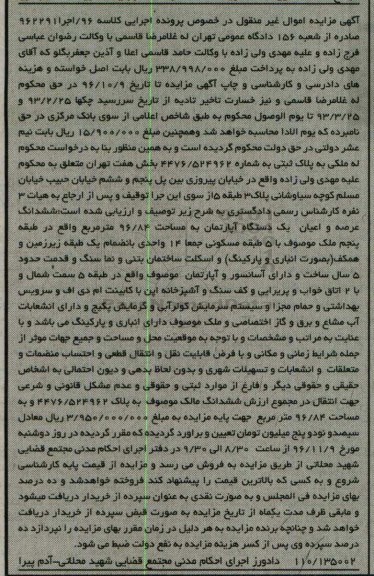 آگهی مزایده اموال غیر منقول در خصوص پرونده اجرایی کلاسه ۹۶/اجرا/۹۶۲۲۹
صادره از شعبه ۱۵۶ دادگاه عمومی تهران له غلامرضا قاسمی با وکالت رضوان عباسی
فرج زاده و علیه مهدی ولی زاده با وکالت حامد قاسمی اعلا و آذین جعفربگلو که آقای
مهدی ولی زاده به پرداخت مبلغ ۳۳۸/۹۹۸/۰۰۰ ریال بابت اصل خواسته و هزینه
های دادرسی و کارشناسی و چاپ آگهی مزایده تا تاریخ ۹۶/۱۰/۹ در حق محکوم
له غلامرضا قاسمی و نیز خسارت تاخیر تادیه از تاریخ سررسید چکها ۹۳/۲/۲۵ و
۹۳/۳/۲۵ تا یوم الوصول محکوم به طبق شاخص اعلامی از سوی بانک مرکزی در حق
نامبرده که یوم الادا محاسبه خواهد شد وهمچنین مبلغ ۱۵/۹۰۰/۰۰۰ ریال بابت نیم
عشر دولتی در حق دولت محکوم گردیده است و به همین منظور بنا به درخواست محکوم
له ملکی به پلاک ثبتی به شماره ۴۴۷۶/۵۲۴۹۶۲ بخش هفت تهران متعلق به محکوم
علیه مهدی ولی زاده واقع در خیابان پیروزی بین پل پنجم و ششم خیابان حبیب خیابان
مسلم کوچه سیاوشانی پلاک۳ طبقه ۵از سوی این جرا توقیف و پس از ارجاع به هیات ۳
نفره کارشناس رسمی دادگستری به شرح زیر توصیف و ارزیابی شده است:ششدانگ
عرصه و اعیان یک دستگاه آپارتمان به مساحت ۹۶/۸۴ مترمربع واقع در طبقه
پنجم ملک موصوف با ۵ طبقه مسکونی جمعا ۱۴ واحدی بانضمام یک طبقه زیرزمین و
همکف(بصورت انباری و پارکینگ) و اسکلت ساختمان بتنی و نما سنگ و قدمت حدود
۵ سال ساخت و دارای آسانسور و آپارتمان موصوف واقع در طبقه ۵ سمت شمال و
با ۲ اتاق خواب و پریرایی و کف سنگ و آشپزخانه اپن با کابینت ام دی اف و سرویس
بهداشتی و حمام مجزا و سیستم سرمایش کولرآبی و گرمایش پکیج و دارای انشعابات
آب مشاع و برق و گاز اختصاصی و ملک موصوف دارای انباری و پارکینگ می باشد و با
عنایت به مراتب و مشخصات و با توجه به موقعیت محل و مساحت و جمیع جهات موثر از
جمله شرایط زمانی و مکانی و با فرض قابلیت نقل و انتقال قطعی و احتساب منضمات و
متعلقات و انشعابات و تسهیلات شهری و بدون لحاظ بدهی و دیون احتمالی به اشخاص
حقیقی و حقوقی دیگر و فارغ از موارد ثبتی و حقوقی و عدم مشکل قانونی و شرعی
جهت انتقال در مجموع ارزش ششدانگ مالک موصوف به پلاک ۴۴۷۶/۵۲۴۹۶۲ و به
مساحت ۹۶/۸۴ متر مربع جهت پایه مزایده به مبلغ ۳/۹۵۰/۰۰۰/۰۰۰ ریال معادل
سیصدو نودو پنج میلیون تومان تعیین و براورد گردیده که مقرر گردیده در روز دوشنبه
مورخ ۹۶/۱۱/۹ از ساعت ۸/۳۰ الی ۹/۳۰ در دفتر اجرای احکام مدنی مجتمع قضایی
شهید محلاتی از طریق مزایده به فروش می رسد و مزایده از قیمت پایه کارشناسی
شروع و به کسی که بالاترین قیمت را پیشنهاد کند فروخته خواهدشد و ده درصد
بهای مزایده فی المجلس و به صورت نقدی به عنوان سپرده از خریدار دریافت میشود
و مابقی ظرف مدت یکماه از تاریخ مزایده به صورت قبض سپرده از خریدار دریافت
خواهد شد و چنانچه برنده مزایده به هر دلیل در زمان مقرر بهای مزایده را نپردازد ده
درصد سپرده وی پس از کسر هزینه مزایده به نفع دولت ضبط می شود.
۱۱۰/۱۳۵۰۰۲ دادورز اجرای احکام مدنی مجتمع قضایی شهید محلاتی-آدم پیرا